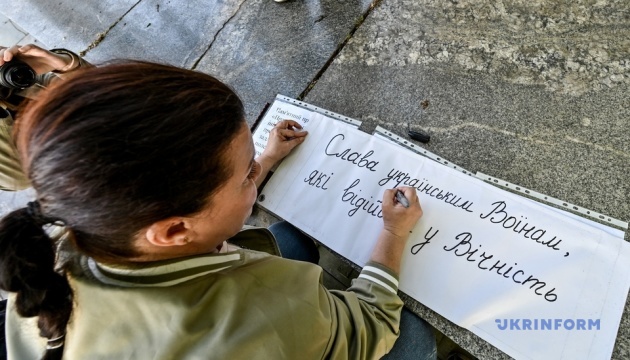 Слава українським Воїнам,
які відій у Вічність
UKRINFORM